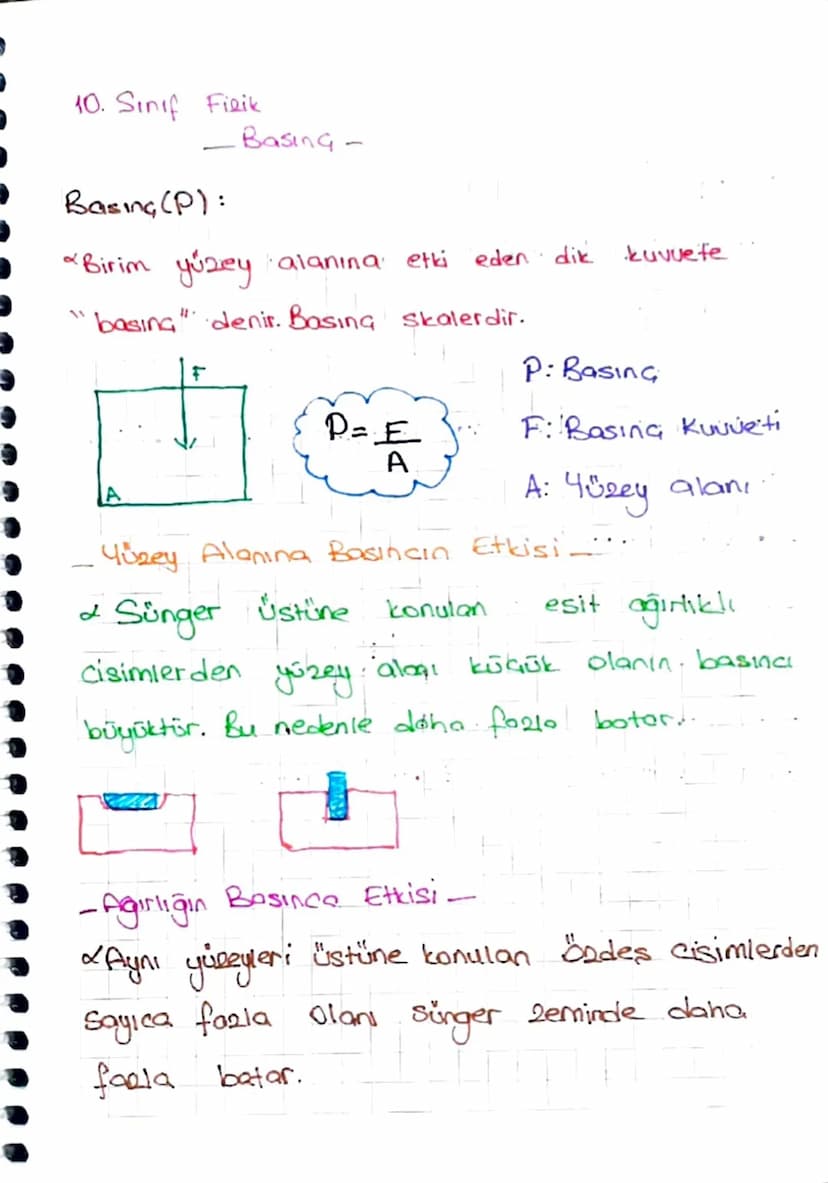 10. Sınıf Fizik
- Basınç -
Basınç (P) :
Birim yüzey alanına etki eden dik kuvvete
"basınç" denir. Basınç skalerdir.
F
A
P = F
A
P: Basınç
F: Basınç Kuvveti
A: Yüzey alanı
- Yüzey Alanına Basıncın Etkisi -
Sünger üstüne konulan esit ağırlıklı
cisimlerden yüzey alanı küçük olanın basıncı
büyüktür. Bu nedenle daha fazla batar.
- Ağırlığın Basınca Etkisi -
Aynı yüzeyleri üstüne konulan özdeş cisimlerden
sayıca fazla olanı sünger zeminde daha
fazla batar.